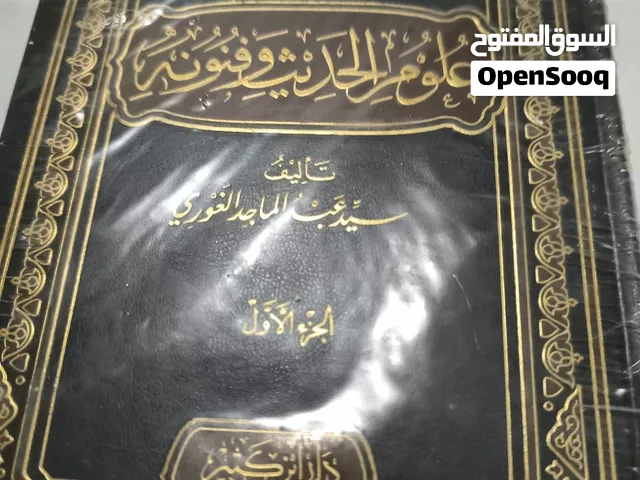 السوق المفتوح
OpenSooq
علوم الحديث وفنونه
تأليف
سيد عبد الماجد الغوري
الجزء الأول
دار ابن كثير